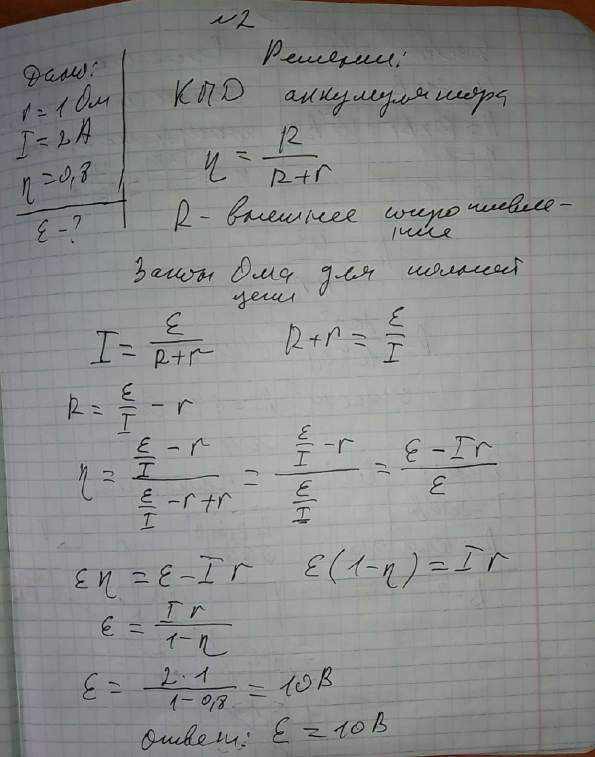 №2
Дано:
r = 1 Ом
I = 2 А
η = 0,8
ε - ?
Решение:
КПД аккумулятора
η = R / (R + r)
R - внешнее сопротивле-
ние
Закон Ома для полной
цепи
I = ε / (R + r)    R + r = ε / I
R = ε / I - r
η = (ε/I - r) / (ε/I - r + r) = (ε/I - r) / (ε/I) = (ε - Ir) / ε
εη = ε - Ir    ε(1 - η) = Ir
ε = Ir / (1 - η)
ε = 2·1 / (1 - 0,8) = 10 В
Ответ: ε = 10 В